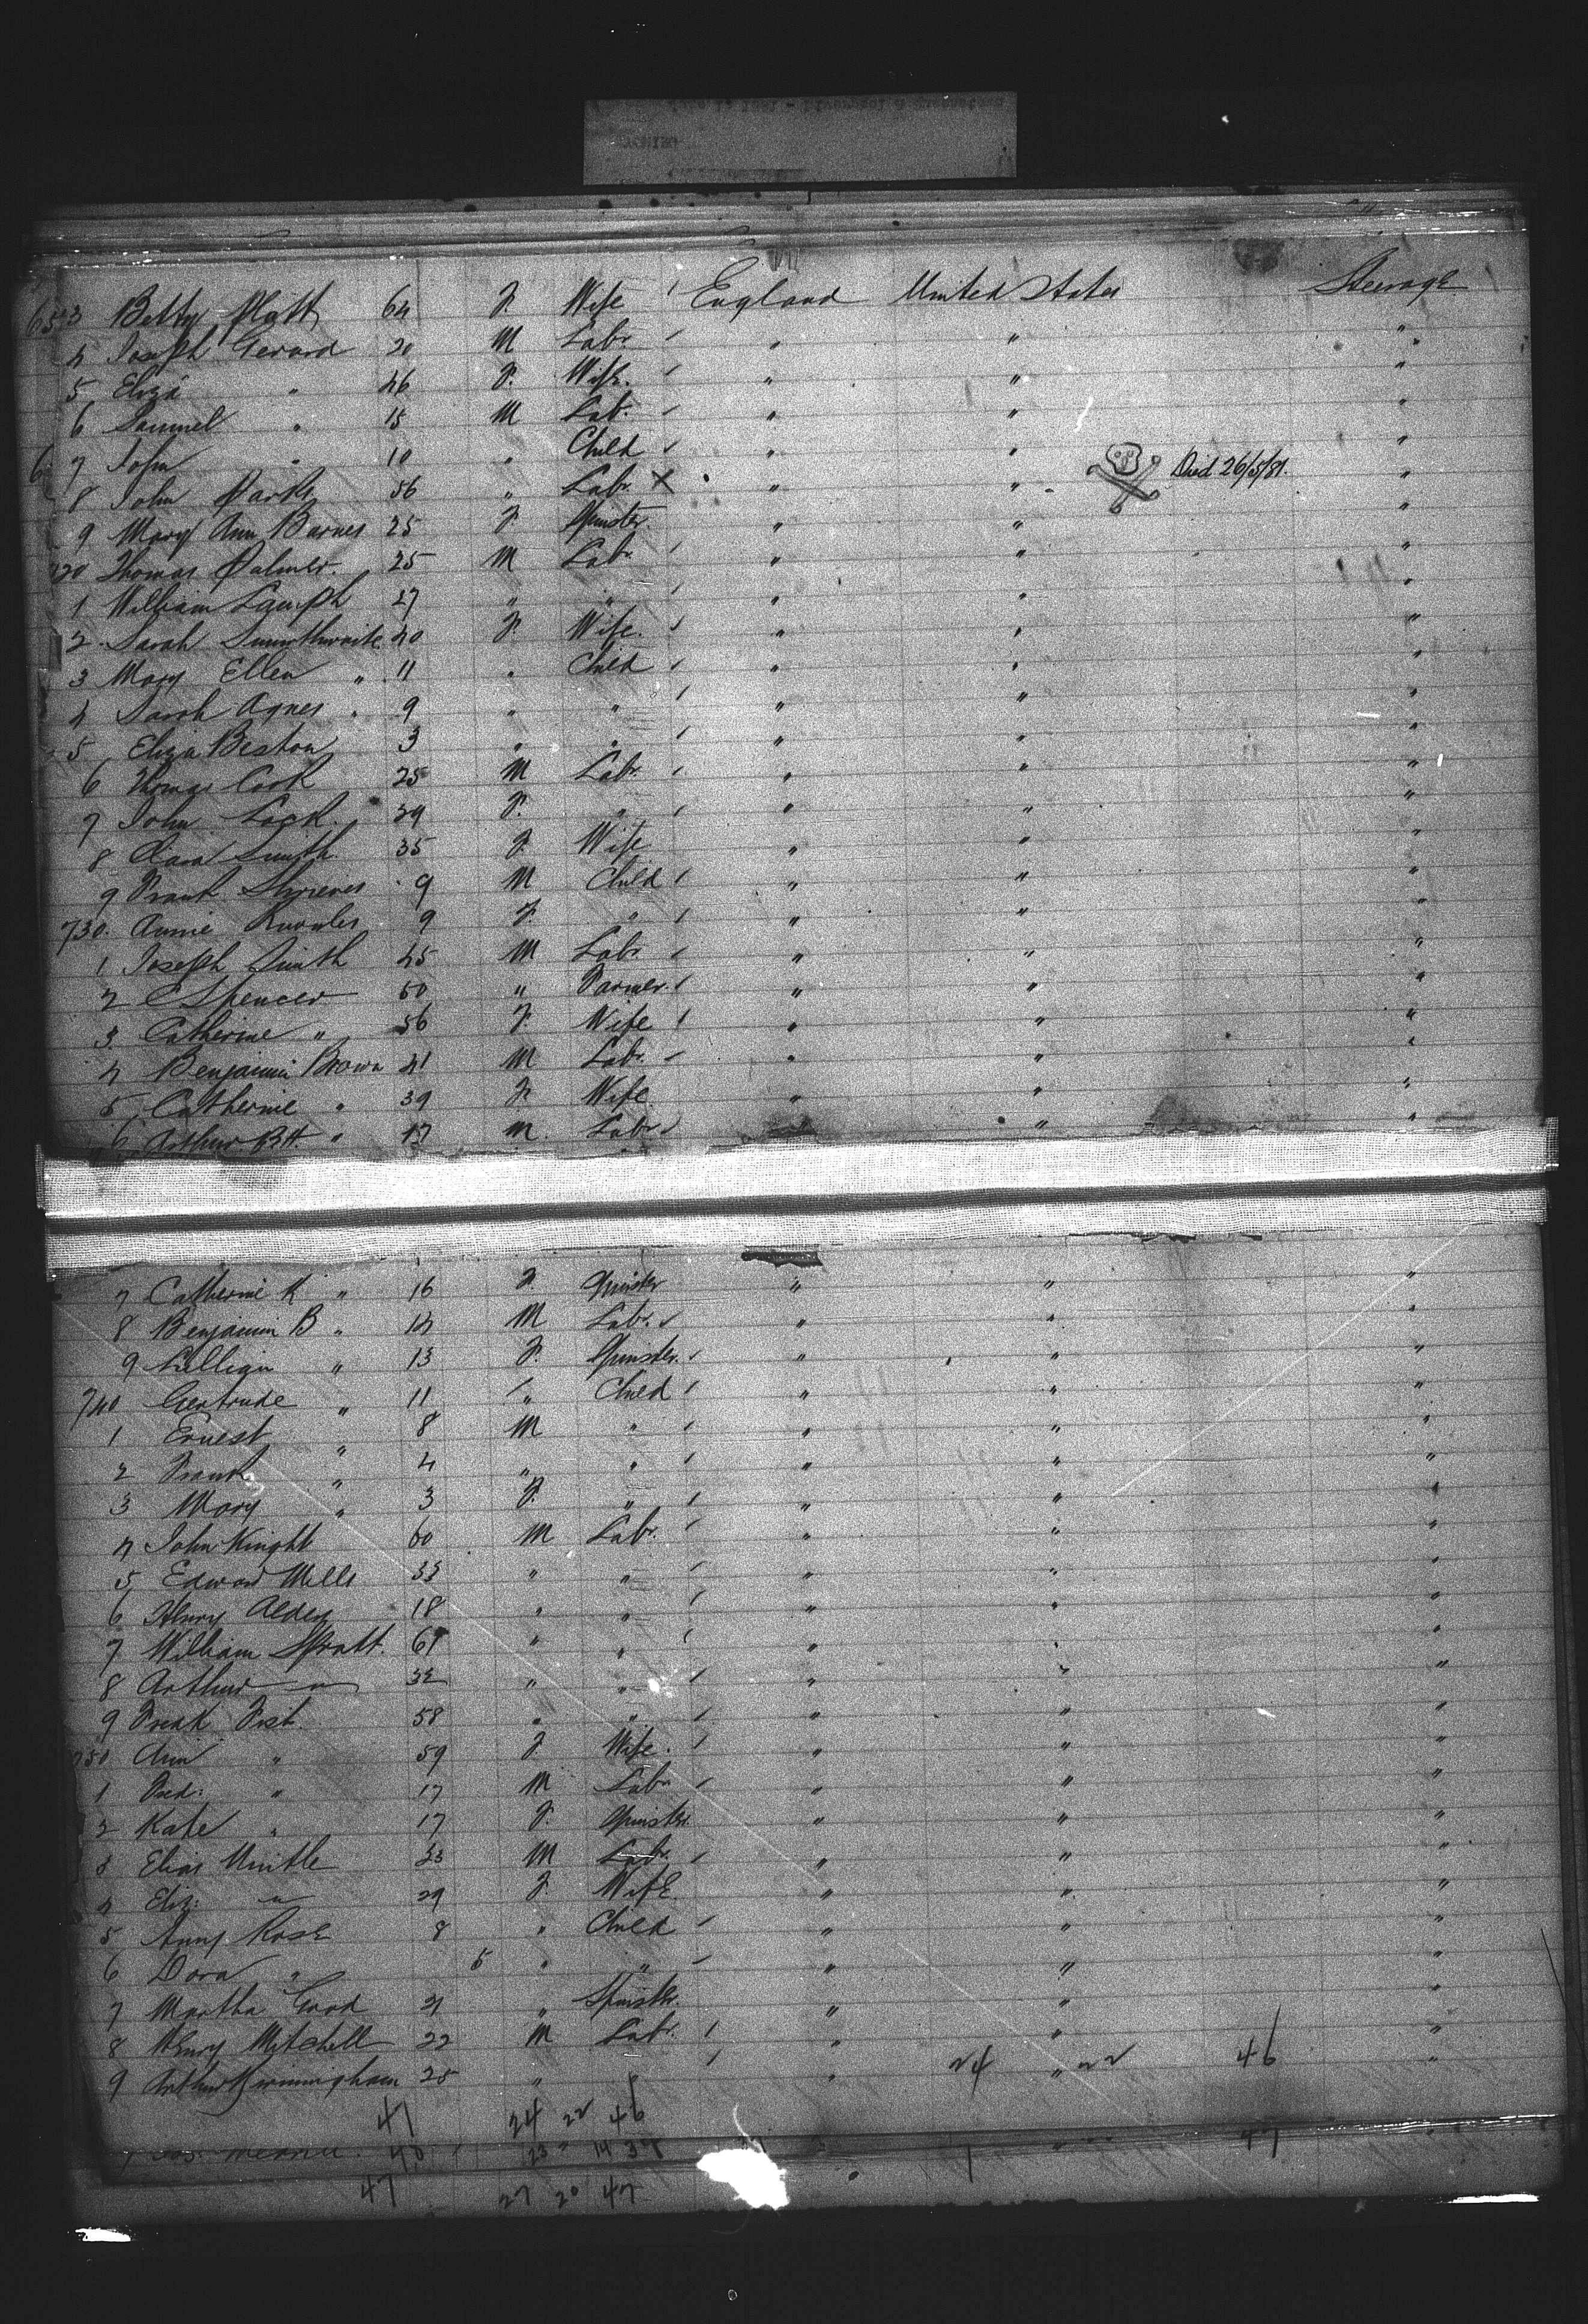 3 Betty Platt 64 F. Wife England United States Steerage
4 Joseph Gerard 20 M Labr. " " "
5 Eliza " 46 F. Wife. " " "
6 Samuel " 15 M Labr. " " "
7 John " 10 " Child " " "
8 John Parks 56 " Labr. X " " Died 26/5/81. "
9 Mary Ann Barnes 25 F Spinster. " " "
720 Thomas Palmer. 25 M Labr. " " "
1 William 27 " " " " "
2 Sarah Smurthwaite 40 F. Wife. " " "
3 Mary Ellen " 11 " Child " " "
4 Sarah Agnes " 9 " " " " "
5 Eliza Beston 3 " " " " "
6 Thomas Cook 25 M Labr. " " "
7 John Lock. 39 F. " " " "
8 Clara Smith 35 F Wife " " "
9 Frank Shrieves 9 M Child " " "
730. Annie Knowles 9 F. " " " "
1 Joseph Smith 45 M Labr. " " "
2 C Spencer 60 " Farmer. " " "
3. Catherine " 56 F. Wife " " "
4 Benjamin Brown 41 M Labr. " " "
5 Catherine " 39 F. Wife " " "
6 Arthur B.H. " 17 M. Labr. " " "
7 Catherine K " 16 F. Spinster " " "
8 Benjamin B " 14 M Labr. " " "
9 Lillian " 13 F. Spinster. " " "
740 Gertrude " 11 " Child " " "
1 Ernest " 8 M " " " "
2 Frank " 4 " " " " "
3 Mary " 3 F. " " " "
4 John Knight 60 M Labr. " " "
5 Edward Mills 33 " " " " "
6 Henry Alden 18 " " " " "
7 William Spratt. 61 " " " " "
8 Arthur " 32 " " " " "
9 Fish. 58 " " " " "
750 Ann " 59 F Wife. " " "
1 Fred: " 17 M Labr. " " "
2 Kate " 17 F. Spinster. " " "
3 Elias 33 M Labr. " " "
4 Eliz: " 29 F. Wife. " " "
5 Rose 8 " Child " " "
6 Dora " 5 " " " " "
7 Martha Good 21 " Spinster. " " "
8 Henry Mitchell 22 M Labr. " " "
9 Arthur Birmingham 25 " " " 24 " 22 46 "
47 24 22 46
40 23 14 37 47
47 27 20 47